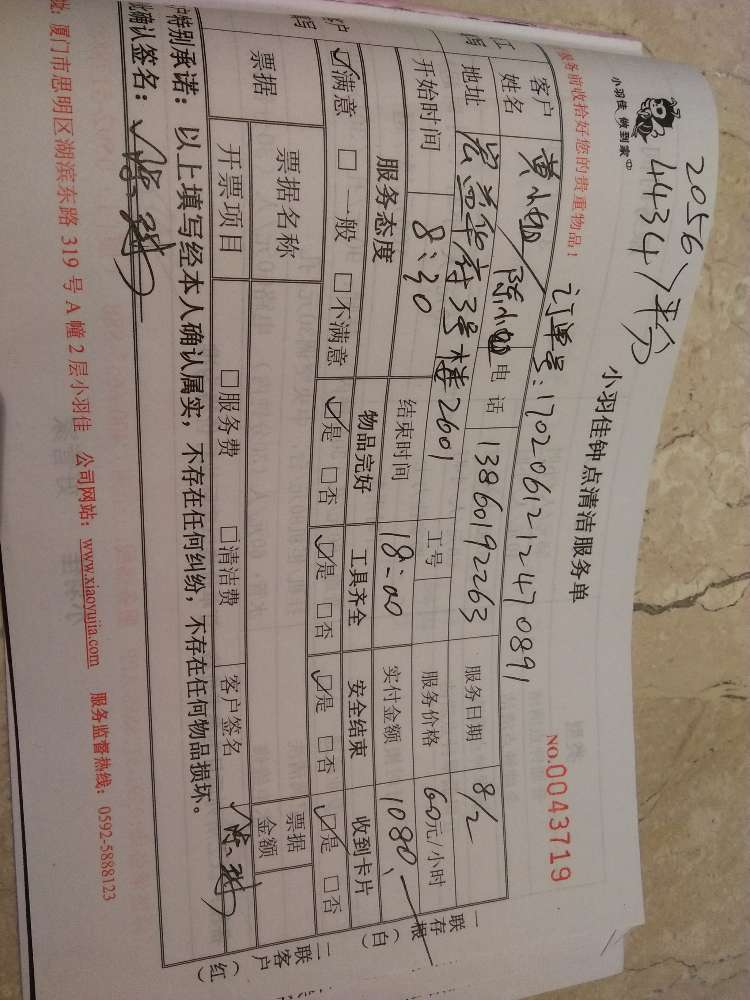 2056
4434 平分
小羽佳 做到家
小羽佳钟点清洁服务单
服务前收拾好您的贵重物品！
订单号：17020612124708​91
NO.0043719
客户姓名 黄小姐/陈小姐 电话 13860192263 服务日期 8/2
地址 宏益华府3号楼2601 工号 服务价格 60元/小时
开始时间 8：30 结束时间 18：00 实付金额 1080.—
服务态度 物品完好 工具齐全 安全结束 收到卡片
☑满意 □一般 □不满意 ☑是 □否 ☑是 □否 ☑是 □否 ☑是 □否
票据 票据名称 票据金额
开票项目 □服务费 □清洁费 客户签名
户特别承诺：以上填写经本人确认属实，不存在任何纠纷，不存在任何物品损坏。
确认签名：
一联存根（白）
二联客户（红）
厦门市思明区湖滨东路 319 号 A 幢 2 层小羽佳 公司网站：www.xiaoyujia.com 服务监督热线：0592-5888123